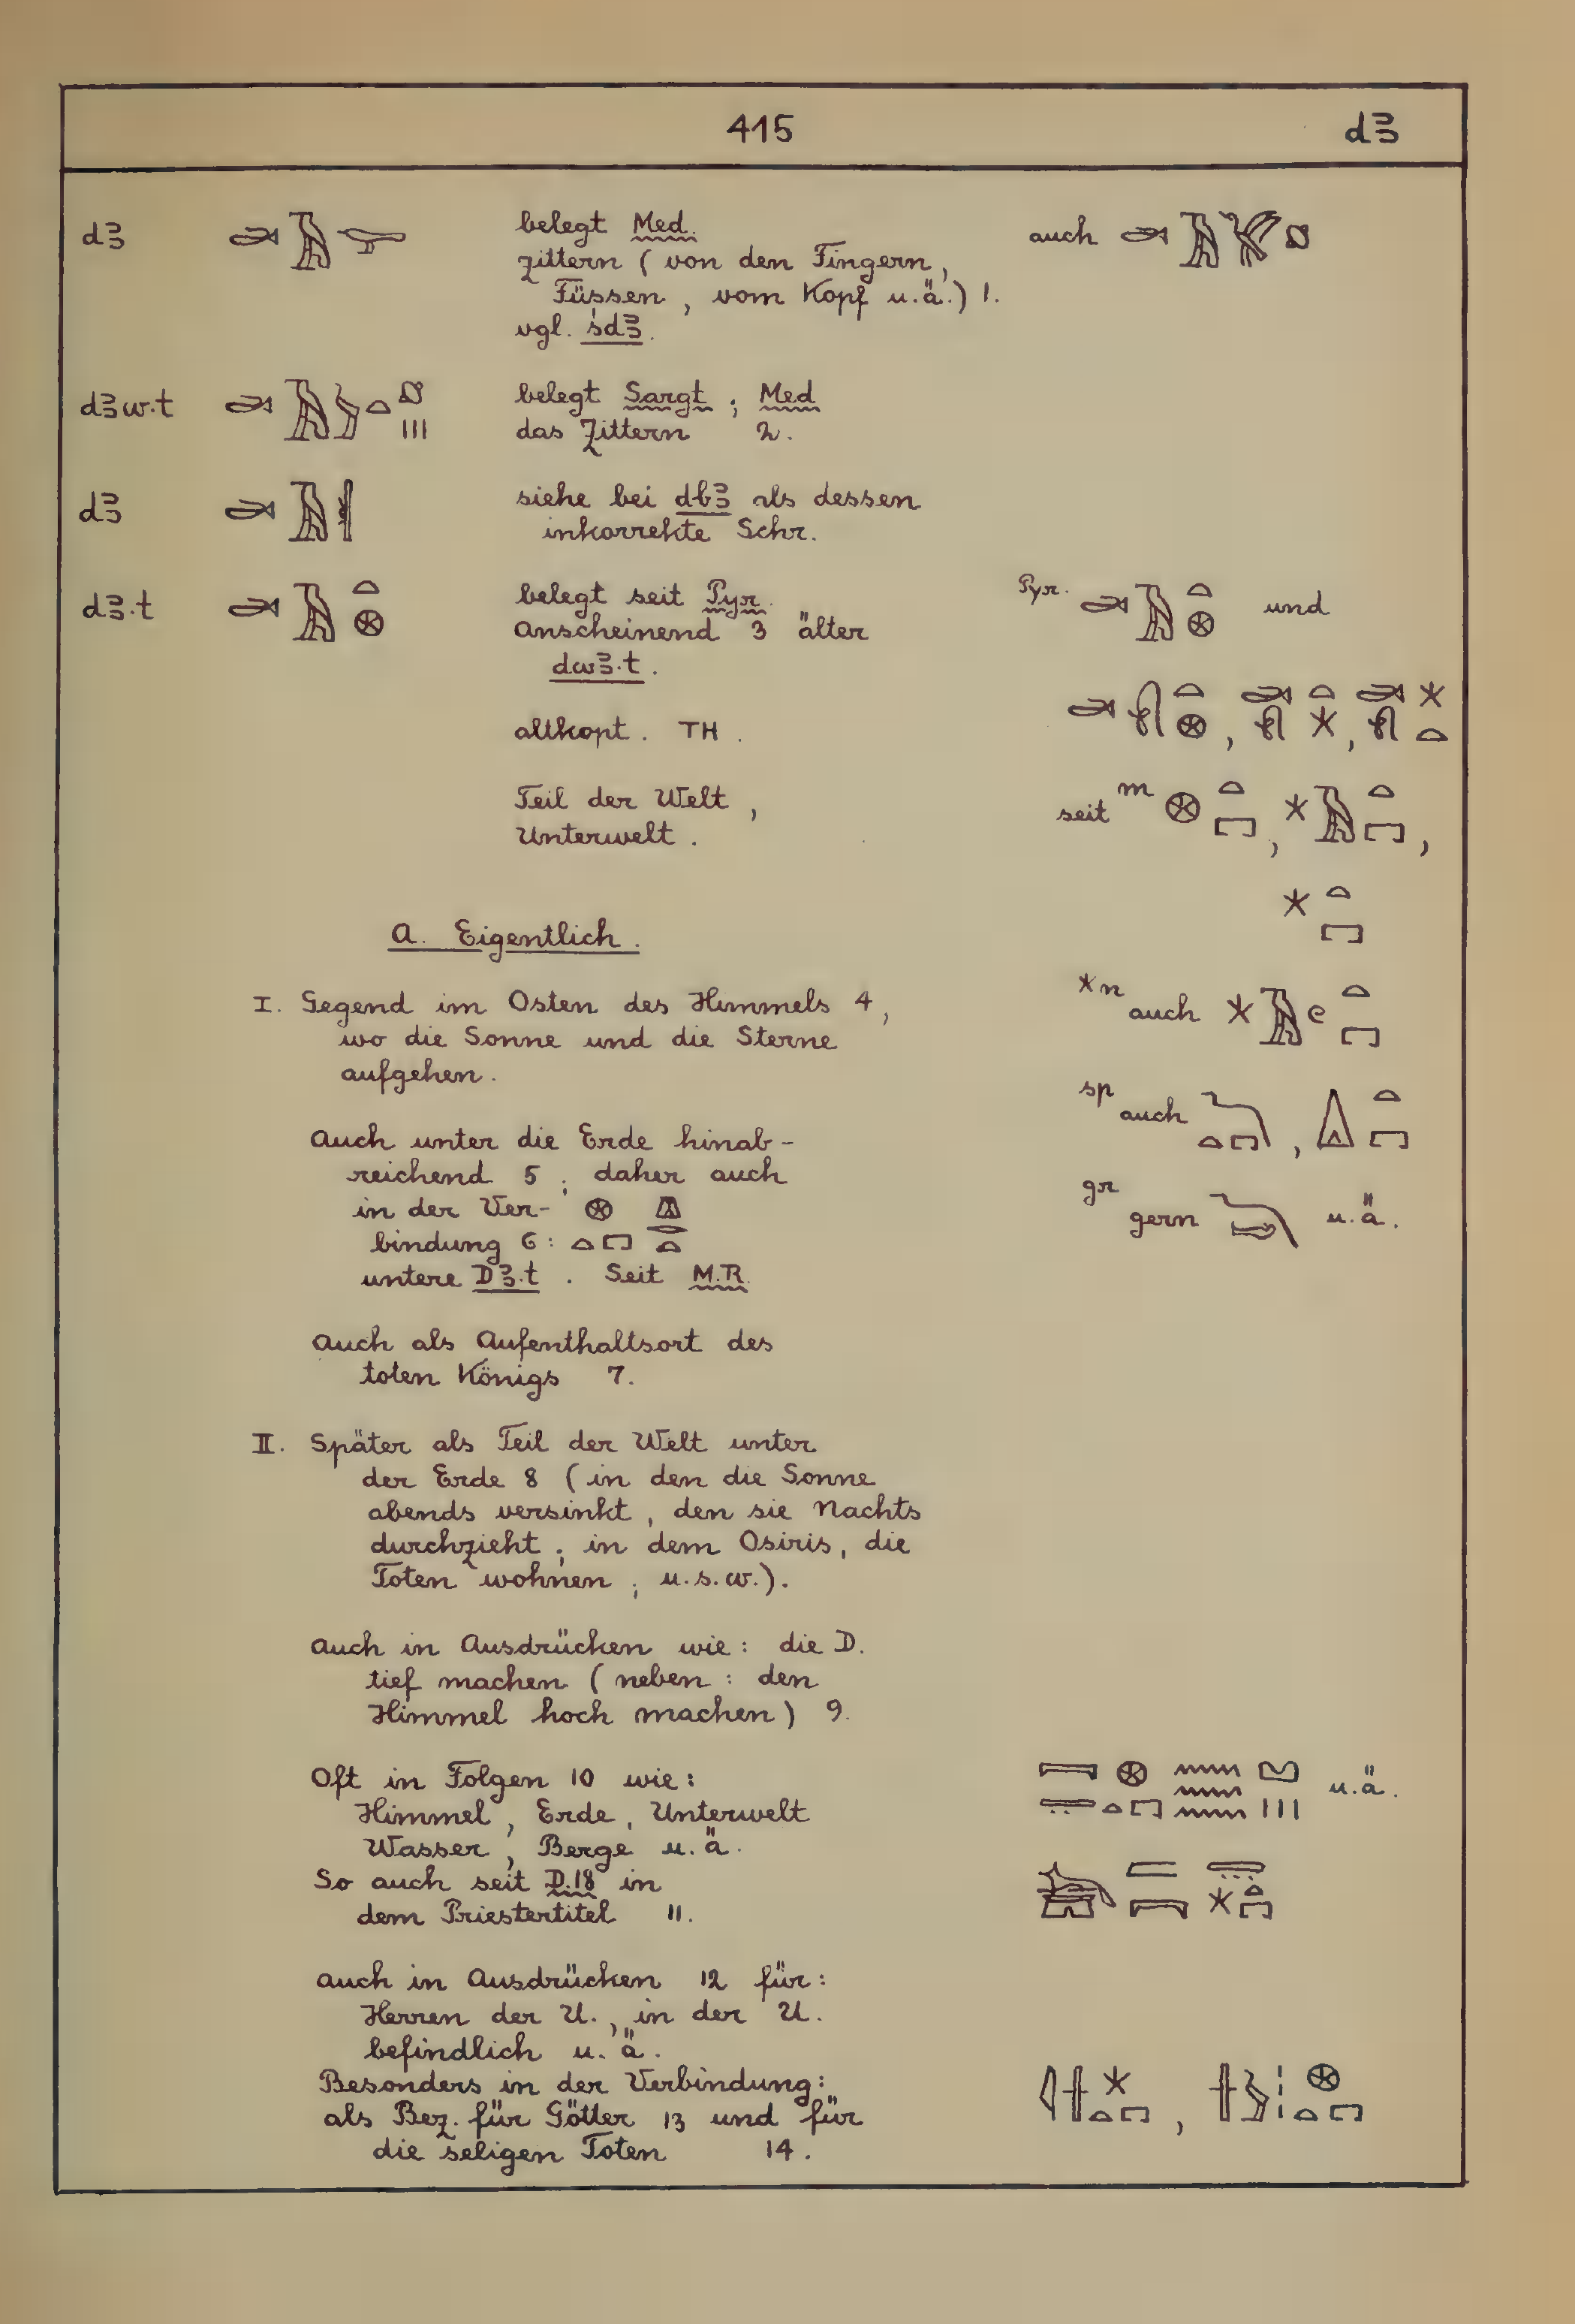 415 dꜣ
dꜣ 𓂧𓄿𓅯 belegt Med. auch 𓂧𓄿
zittern (von den Fingern,
Füssen, vom Kopf u.ä.) 1.
vgl. śdꜣ.
dꜣw.t 𓂧𓄿𓅱𓏏𓏥 belegt Sargt; Med
das Zittern 2.
dꜣ 𓂧𓄿𓆱 siehe bei dbꜣ als dessen
inkorrekte Schr.
dꜣ.t 𓂧𓄿𓏏𓊖 belegt seit Pyr. Pyr. 𓂧𓄿𓏏 und
anscheinend 3 älter
dwꜣ.t.
altkopt. TH.
Teil der Welt, seit m
Unterwelt. 𓇼𓄿𓏏𓉐,
𓇼𓏏𓉐
A. Eigentlich.
I. Gegend im Osten des Himmels 4, *n auch 𓇼𓄿𓏲𓏏𓉐
wo die Sonne und die Sterne
aufgehen.
sp auch
Auch unter die Erde hinab-
reichend 5; daher auch
in der Ver- gr gern u.ä.
bindung 6:
untere Dꜣ.t. Seit M.R.
Auch als Aufenthaltsort des
toten Königs 7.
II. Später als Teil der Welt unter
der Erde 8 (in den die Sonne
abends versinkt, den sie Nachts
durchzieht; in dem Osiris, die
Toten wohnen; u.s.w.).
Auch in Ausdrücken wie: die D.
tief machen (neben: den
Himmel hoch machen) 9.
Oft in Folgen 10 wie: u.ä.
Himmel, Erde, Unterwelt
Wasser, Berge u.ä.
So auch seit D.18 in
dem Priestertitel 11.
Auch in Ausdrücken 12 für:
Herren der U., in der U.
befindlich u.ä.
Besonders in der Verbindung:
als Bez. für Götter 13 und für
die seligen Toten 14.